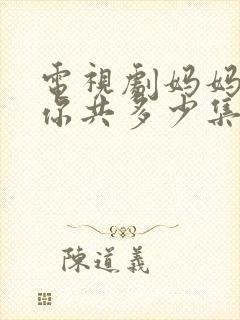 電視劇妈妈
你共多少集
陳道義